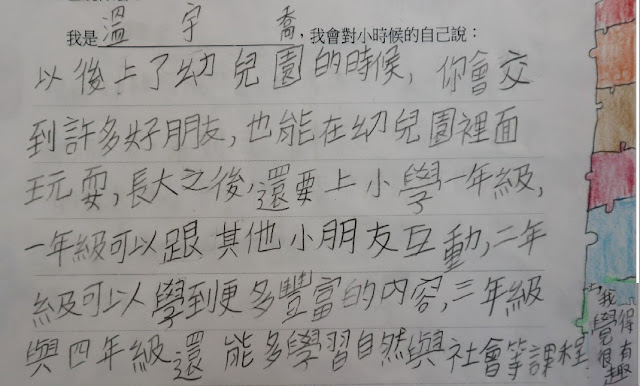 我是溫宇喬，我會對小時候的自己說：
以後上了幼兒園的時候，你會交
到許多好朋友，也能在幼兒園裡面
玩耍，長大之後，還要上小學一年級，
一年級可以跟其他小朋友互動，二年
級可以學到更多豐富的內容，三年級
與四年級還能多學習自然與社會等課程
我覺得很有趣